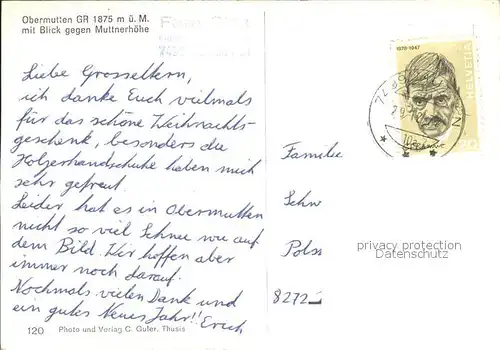 Obermutten GR 1875 m ü. M.
mit Blick gegen Muttnerhöhe
Liebe Grosseltern,
ich danke Euch vielmals
für das schöne Weihnachts-
geschenk, besonders die
Holzerhandschuhe haben mich
sehr gefreut.
Leider hat es in Obermutten
nicht so viel Schnee wie auf
dem Bild. Wir hoffen aber
immer noch darauf.
Nochmals vielen Dank und
ein gutes Neues Jahr!! Erich
120 Photo und Verlag C. Guler, Thusis
1878-1947
HELVETIA
Familie
Schw
Polss
8272
privacy protection
Datenschutz